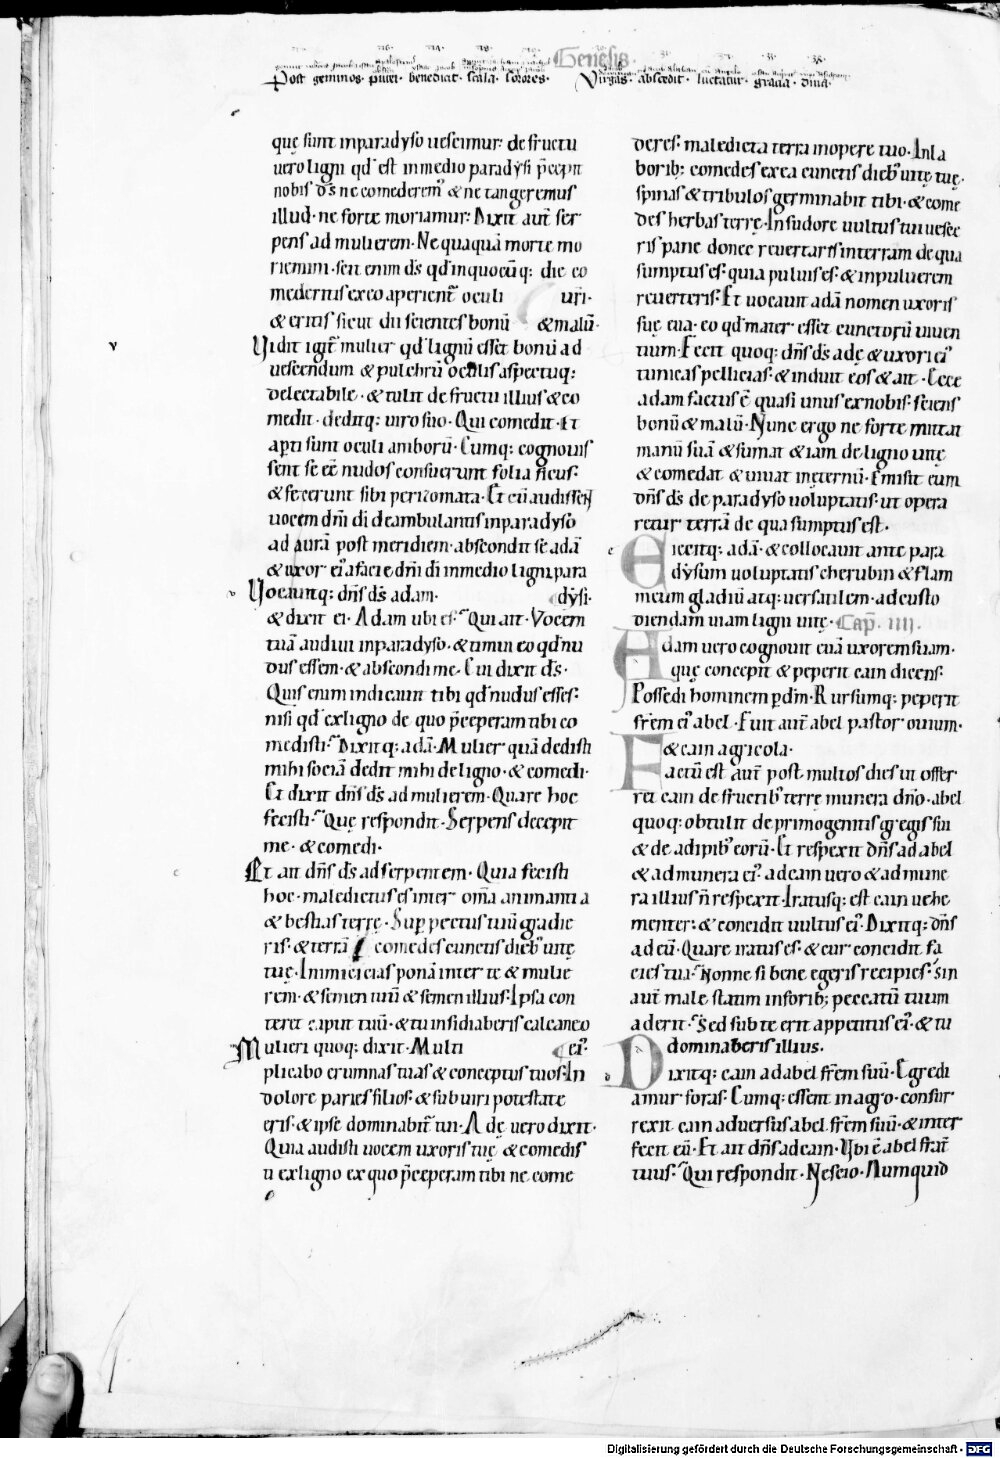 Genesis
Post geminos. puteí. benedicat. scala. sorores. Virgas. abscedit. luctatur. dina.
quę sunt inparadyso uescimur: de fructu
uero ligni qd̄ est inmedio paradysi p̄cepit
nobis d̄s ne comederem᷒ & ne tangeremus
illud. ne forte moriamur: Dixit aut̄ ser
pens ad mulierem. Nequaquā morte mo
riemini. scit enim d̄s qd̄ inquocūq; die co
mederitis ex eo aperient᷒ oculi uri.
& eritis sicut dii scientes bonū & malū.
Vidit igit᷒ mulier qd̄ lignū esset bonū ad
uescendum & pulchrū oculis aspectuq;
delectabile. & tulit de fructu illius & co
medit. deditq; uiro suo. Qui comedit. Et
apti sunt oculi amborū. Cumq; cognouis
sent se eē nudos consuerunt folia ficus.
& fecerunt sibi perizomata. Et cū audissent
uocem dn̄i di deambulantis inparadyso
ad aurā post meridiem. abscondit se adā
& uxor ei᷒ a facie dn̄i di inmedio ligni para
Vocauitq; dn̄s d̄s adam. dysi.
& dixit ei. Adam ubi es. Qui ait. Vocem
tuā audiui inparadyso. & timui eo qd̄ nu
dus essem. & abscondi me. Cui dixit d̄s.
Quis enim indicauit tibi qd̄ nudus esses.
nisi qd̄ ex ligno de quo p̄ceperam tibi co
medisti. Dixitq; adā. Mulier quā dedisti
mihi sociā dedit mihi de ligno. & comedi.
Et dixit dn̄s d̄s ad mulierem. Quare hoc
fecisti. Quę respondit. Serpens decepit
me. & comedi.
Et ait dn̄s d̄s ad serpentem. Quia fecisti
hoc. maledictus es inter om̄a animantia
& bestias terrę. Sup pectus tuū gradie
ris. & terrā comedes cunctis dieb᷒ uitę
tuę. Inimicicias ponā inter te & mulie
rem. & semen tuū & semen illius. Ipsa con
teret caput tuū. & tu insidiaberis calcaneo
Mulieri quoq; dixit. Multi ei᷒.
plicabo erumnas tuas & conceptus tuos. In
dolore paries filios. & sub uiri potestate
eris. & ipse dominabit᷒ tui. Adę uero dixit.
Quia audisti uocem uxoris tuę & comedis
ti ex ligno ex quo p̄ceperam tibi ne come
deres. maledicta terra inopere tuo. In la
borib; comedes ex ea cunctis dieb᷒ uitę tuę.
spinas & tribulos germinabit tibi. & come
des herbas terrę. In sudore uultus tui uesce
ris pane donec reuertaris interram de qua
sumptus es. quia puluis es. & inpuluerem
reuerteris. Et uocauit adā nomen uxoris
suę eua. eo qd̄ mater esset cunctorū uiuen
tium. Fecit quoq; dn̄s d̄s adę & uxori ei᷒
tunicas pellicias. & induit eos & ait. Ecce
adam factus ē quasi unus ex nobis. sciens
bonū & malū. Nunc ergo ne forte mittat
manū suā & sumat & iam de ligno uitę
& comedat & uiuat ineternū. Emisit eum
dn̄s d̄s de paradyso uoluptatis. ut opera
retur terrā de qua sumptus est.
Eiecitq; adā. & collocauit ante para
dysum uoluptatis cherubin & flam
meum gladiū atq; uersatilem. ad custo
diendam uiam ligni uitę. Cap̄. IIII.
Adam uero cognouit euā uxorem suam.
quę concepit & peperit cain dicens.
Possedi hominem p dm̄. Rursumq; peperit
frēm ei᷒ abel. Fuit aut̄ abel pastor ouium.
& cain agricola.
Factū est aut̄ post multos dies ut offer
ret cain de fructib᷒ terrę munera dn̄o. abel
quoq; obtulit de primogenitis gregis sui
& de adipib᷒ eorū. Et respexit dn̄s ad abel
& ad munera ei᷒. ad cain uero & ad mune
ra illius n̄ respexit. Iratusq; est cain uehe
menter. & concidit uultus ei᷒. Dixitq; dn̄s
ad eū. Quare iratus es. & cur concidit fa
cies tua. Nonne si bene egeris recipies. sin
aut̄ male statim inforib; peccatū tuum
aderit. Sed sub te erit appetitus ei᷒. & tu
dominaberis illius.
Dixitq; cain ad abel frēm suū. Egredi
amur foras. Cumq; essent in agro. consur
rexit cain aduersus abel frēm suū. & inter
fecit eū. Et ait dn̄s ad cain. Vbi ē abel frat̄
tuus. Qui respondit. Nescio. Numquid
Digitalisierung gefördert durch die Deutsche Forschungsgemeinschaft - DFG